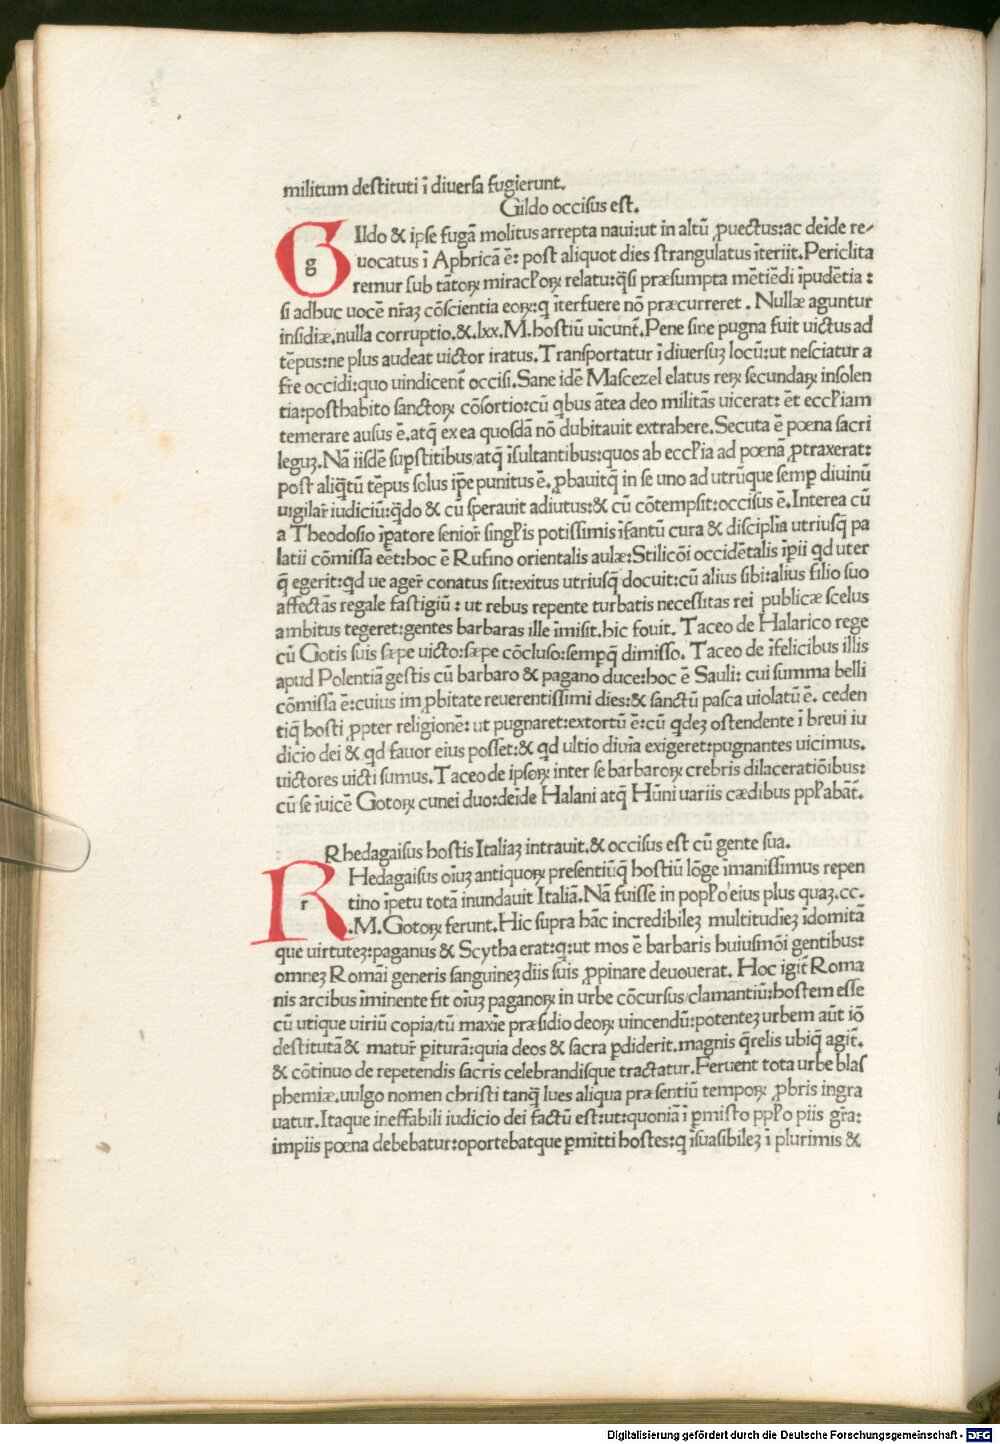 militum destituti ī diuersa fugierunt.
Gildo occisus est.
GIldo & ipse fugā molitus arrepta naui:ut in altū ꝓuectus:ac deīde re-
uocatus ī Aphricā ē: post aliquot dies strangulatus īteriit.Periclita
remur sub tātoꝝ miracl'oꝝ relatu:q̄si præsumpta mētiēdi īpudētia:
si adhuc uocē nr̄aꝫ cōscientia eoꝝ:q īterfuere nō præcurreret. Nullæ aguntur
insidiæ.nulla corruptio.&.lxx.M.hostiū uīcunt̄.Pene sine pugna fuit uictus ad
tēpus:ne plus audeat uictor iratus.Transportatur ī diuersuꝫ locū:ut nesciatur a
fr̄e occidi:quo uindicent̄ occisi.Sane idē Mascezel elatus reꝝ secundaꝝ insolen
tia:posthabito sanctoꝝ cōsortio:cū qbus ātea deo militās uicerat: ēt eccl'iam
temerare ausus ē.atq̄ ex ea quosdā nō dubitauit extrahere.Secuta ē pœna sacri
leguꝫ.Nā iisdē suꝑstitibus/atq̄ īsultantibus:quos ab eccl'ia ad pœnā ꝓtraxerat:
post aliq̄tū tēpus solus ip̄e punitus ē. ꝓbauitq̄ in se uno ad utrūque semꝑ diuinū
uigilar̄ iudiciū:q̄do & cū sperauit adiutus:& cū cōtempsit:occisus ē.Interea cū
a Theodosio īꝑatore senior̄ singl'is potissimis īfantū cura & disciplīa utriusq̄ pa
latii cōmissa eēt:hoc ē Rufino orientalis aulæ:Stilicōi occidētalis īꝑii qd uter
q̄ egerit:qd ue ager̄ conatus sit:exitus utriusq̄ docuit:cū alius sibi:alius filio suo
affectās regale fastigiū: ut rebus repente turbatis necessitas rei publicæ scelus
ambitus tegeret:gentes barbaras ille īmisit.hic fouit. Taceo de Halarico rege
cū Gotis suis sæpe uicto:sæpe cōcluso:semꝑq̄ dimisso. Taceo de īfelicibus illis
apud Polentiā gestis cū barbaro & pagano duce:hoc ē Sauli: cui summa belli
cōmissa ē:cuius imꝓbitate reuerentissimi dies:& sanctū pasca uiolatū ē. ceden
tiq̄ hosti ꝓpter religionē: ut pugnaret:extortū ē:cū qdeꝫ ostendente ī breui iu
dicio dei & qd fauor eius posset:& qd ultio diuīa exigeret:pugnantes uicimus.
uictores uicti sumus.Taceo de ipsoꝝ inter se barbaroꝝ crebris dilaceratiōibus:
cū se īuicē Gotoꝝ cunei duo:deīde Halani atq̄ Hūni uariis cædibus ppl'abāt̄.
Rhedagaisus hostis Italiaꝫ intrauit.& occisus est cū gente sua.
RHedagaisus oīuꝫ antiquoꝝ presentiūq̄ hostiū lōge īmanissimus repen
tino īpetu totā inundauit Italiā.Nā fuisse in popl'o eius plus quaꝫ.cc.
.M.Gotoꝝ ferunt.Hic supra hāc incredibileꝫ multitudīeꝫ īdomitā
que uirtuteꝫ:paganus & Scytha erat:q:ut mos ē barbaris huiusmōi gentibus:
omneꝫ Romāi generis sanguineꝫ diis suis ꝓpinare deuouerat. Hoc igit̄ Roma
nis arcibus īminente fit oīuꝫ paganoꝝ in urbe cōcursus/clamantiū:hostem esse
cū utique uiriū copia/tū maxīe præsidio deoꝝ uincendū:potenteꝫ urbem aūt iō
destitutā & matur̄ ꝑiturā:quia deos & sacra ꝑdiderit.magnis q̄relis ubiq̄ agit̄.
& cōtinuo de repetendis sacris celebrandisque tractatur.Feruent tota urbe blas
phemiæ.uulgo nomen christi tanq̄ lues aliqua præsentiū tempoꝝ ꝓbris ingra
uatur.Itaque ineffabili iudicio dei factū est:ut:quoniā ī ꝑmisto ppl'o piis gr̄a:
impiis pœna debebatur:oportebatque ꝑmitti hostes:q īsuasibileꝫ ī plurimis &
Digitalisierung gefördert durch die Deutsche Forschungsgemeinschaft - DFG